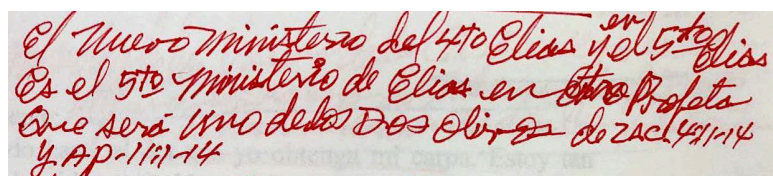 El Nuevo Ministerio del 4to Elias y en el 5to Elias
Es el 5to Ministerio de Elias en otro Profeta
Que será Uno de los Dos Olivos de Zac. 4:11-14
y AP-11:1-14
yo obtenga mi carpa. Estoy tan